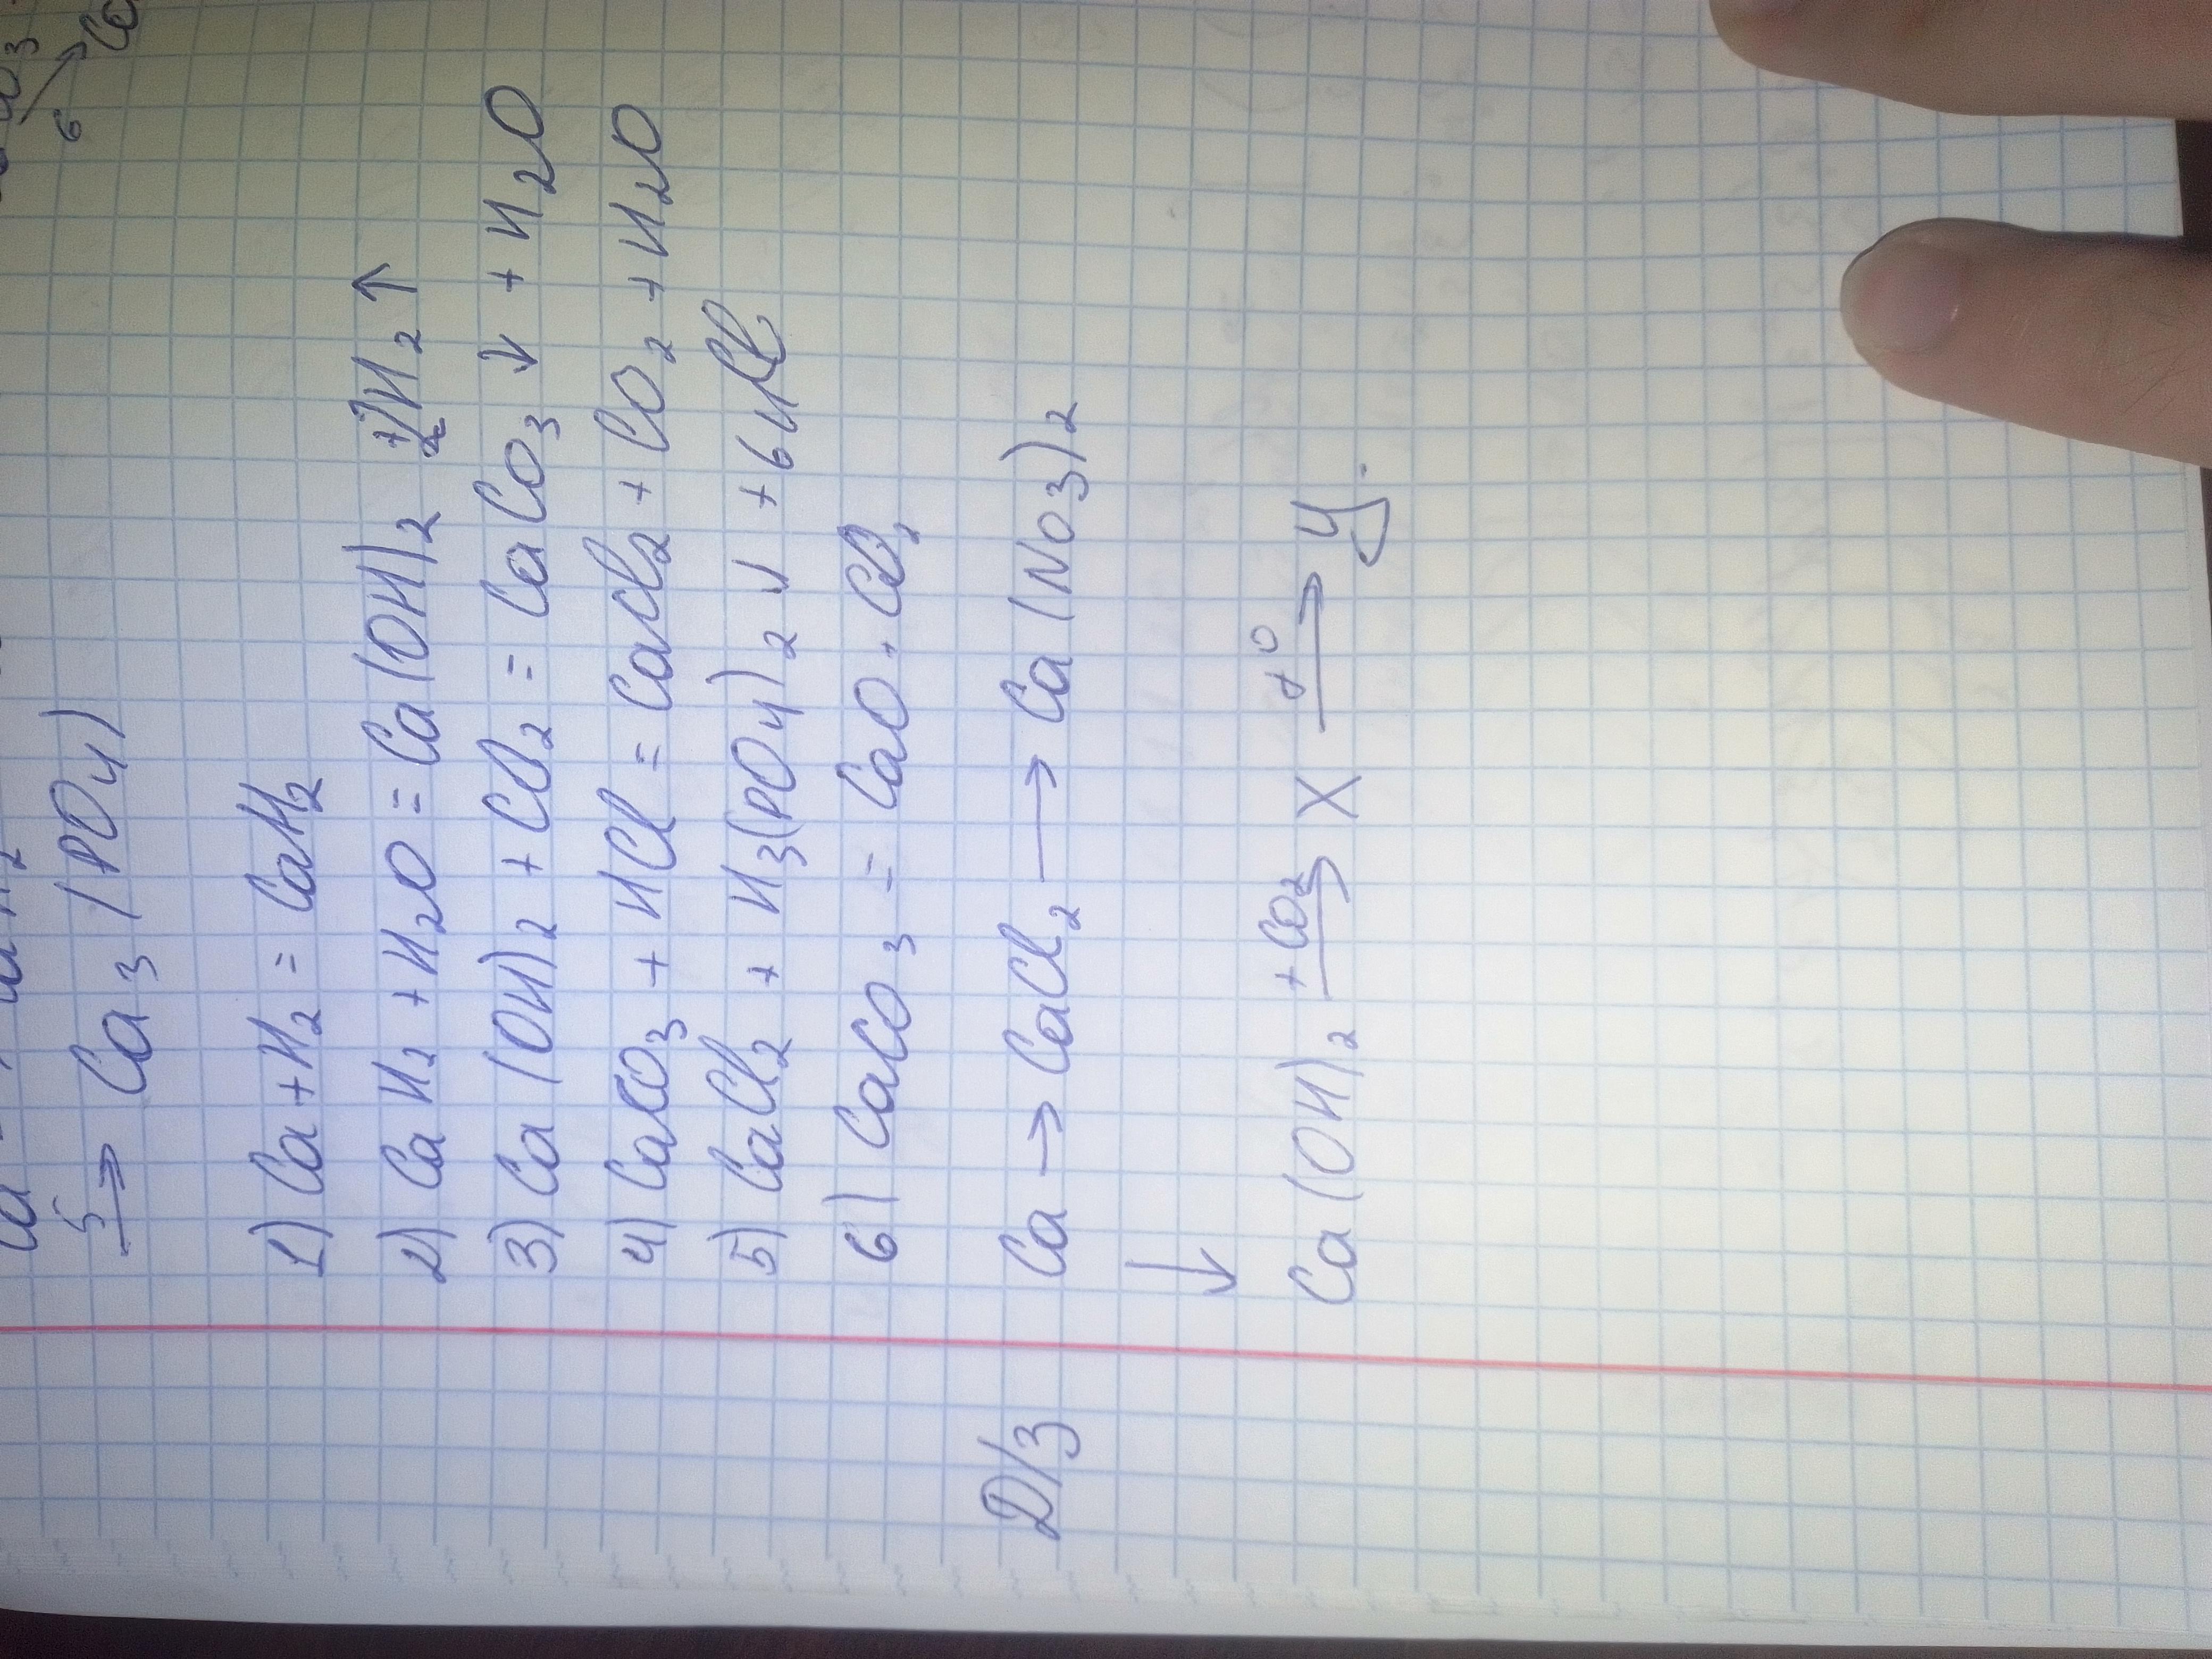 5→ Ca₃(PO₄)
1) Ca + H₂ = CaH₂
2) CaH₂ + H₂O = Ca(OH)₂ + H₂↑
3) Ca(OH)₂ + CO₂ = CaCO₃↓ + H₂O
4) CaCO₃ + HCl = CaCl₂ + CO₂ + H₂O
5) CaCl₂ + H₃(PO₄)₂↓ + 6HCl
6) CaCO₃ = CaO + CO₂
Д/З Ca → CaCl₂ → Ca(NO₃)₂
↓
Ca(OH)₂ +CO₂→ X t°→ У.